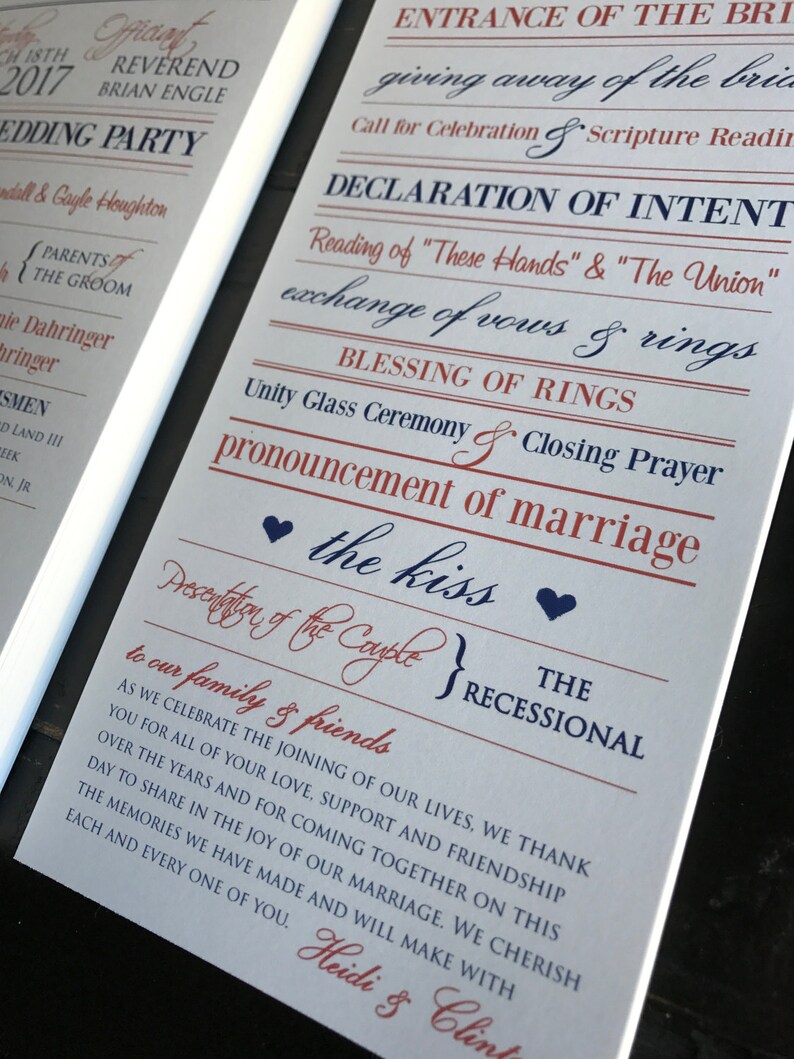 Officiant
CH 18TH
2017
REVEREND
BRIAN ENGLE
EDDING PARTY
ndall & Gayle Houghton
h { PARENTS of
THE GROOM
nie Dahringer
hringer
SMEN
D LAND III
EEK
ON, JR
ENTRANCE OF THE BRI
giving away of the brid
Call for Celebration & Scripture Readin
DECLARATION OF INTENT
Reading of "These Hands" & "The Union"
exchange of vows & rings
BLESSING OF RINGS
Unity Glass Ceremony & Closing Prayer
pronouncement of marriage
the kiss
Presentation of the Couple } THE
RECESSIONAL
to our family & friends
AS WE CELEBRATE THE JOINING OF OUR LIVES, WE THANK
YOU FOR ALL OF YOUR LOVE, SUPPORT AND FRIENDSHIP
OVER THE YEARS AND FOR COMING TOGETHER ON THIS
DAY TO SHARE IN THE JOY OF OUR MARRIAGE. WE CHERISH
THE MEMORIES WE HAVE MADE AND WILL MAKE WITH
EACH AND EVERY ONE OF YOU.
Heidi & Clint